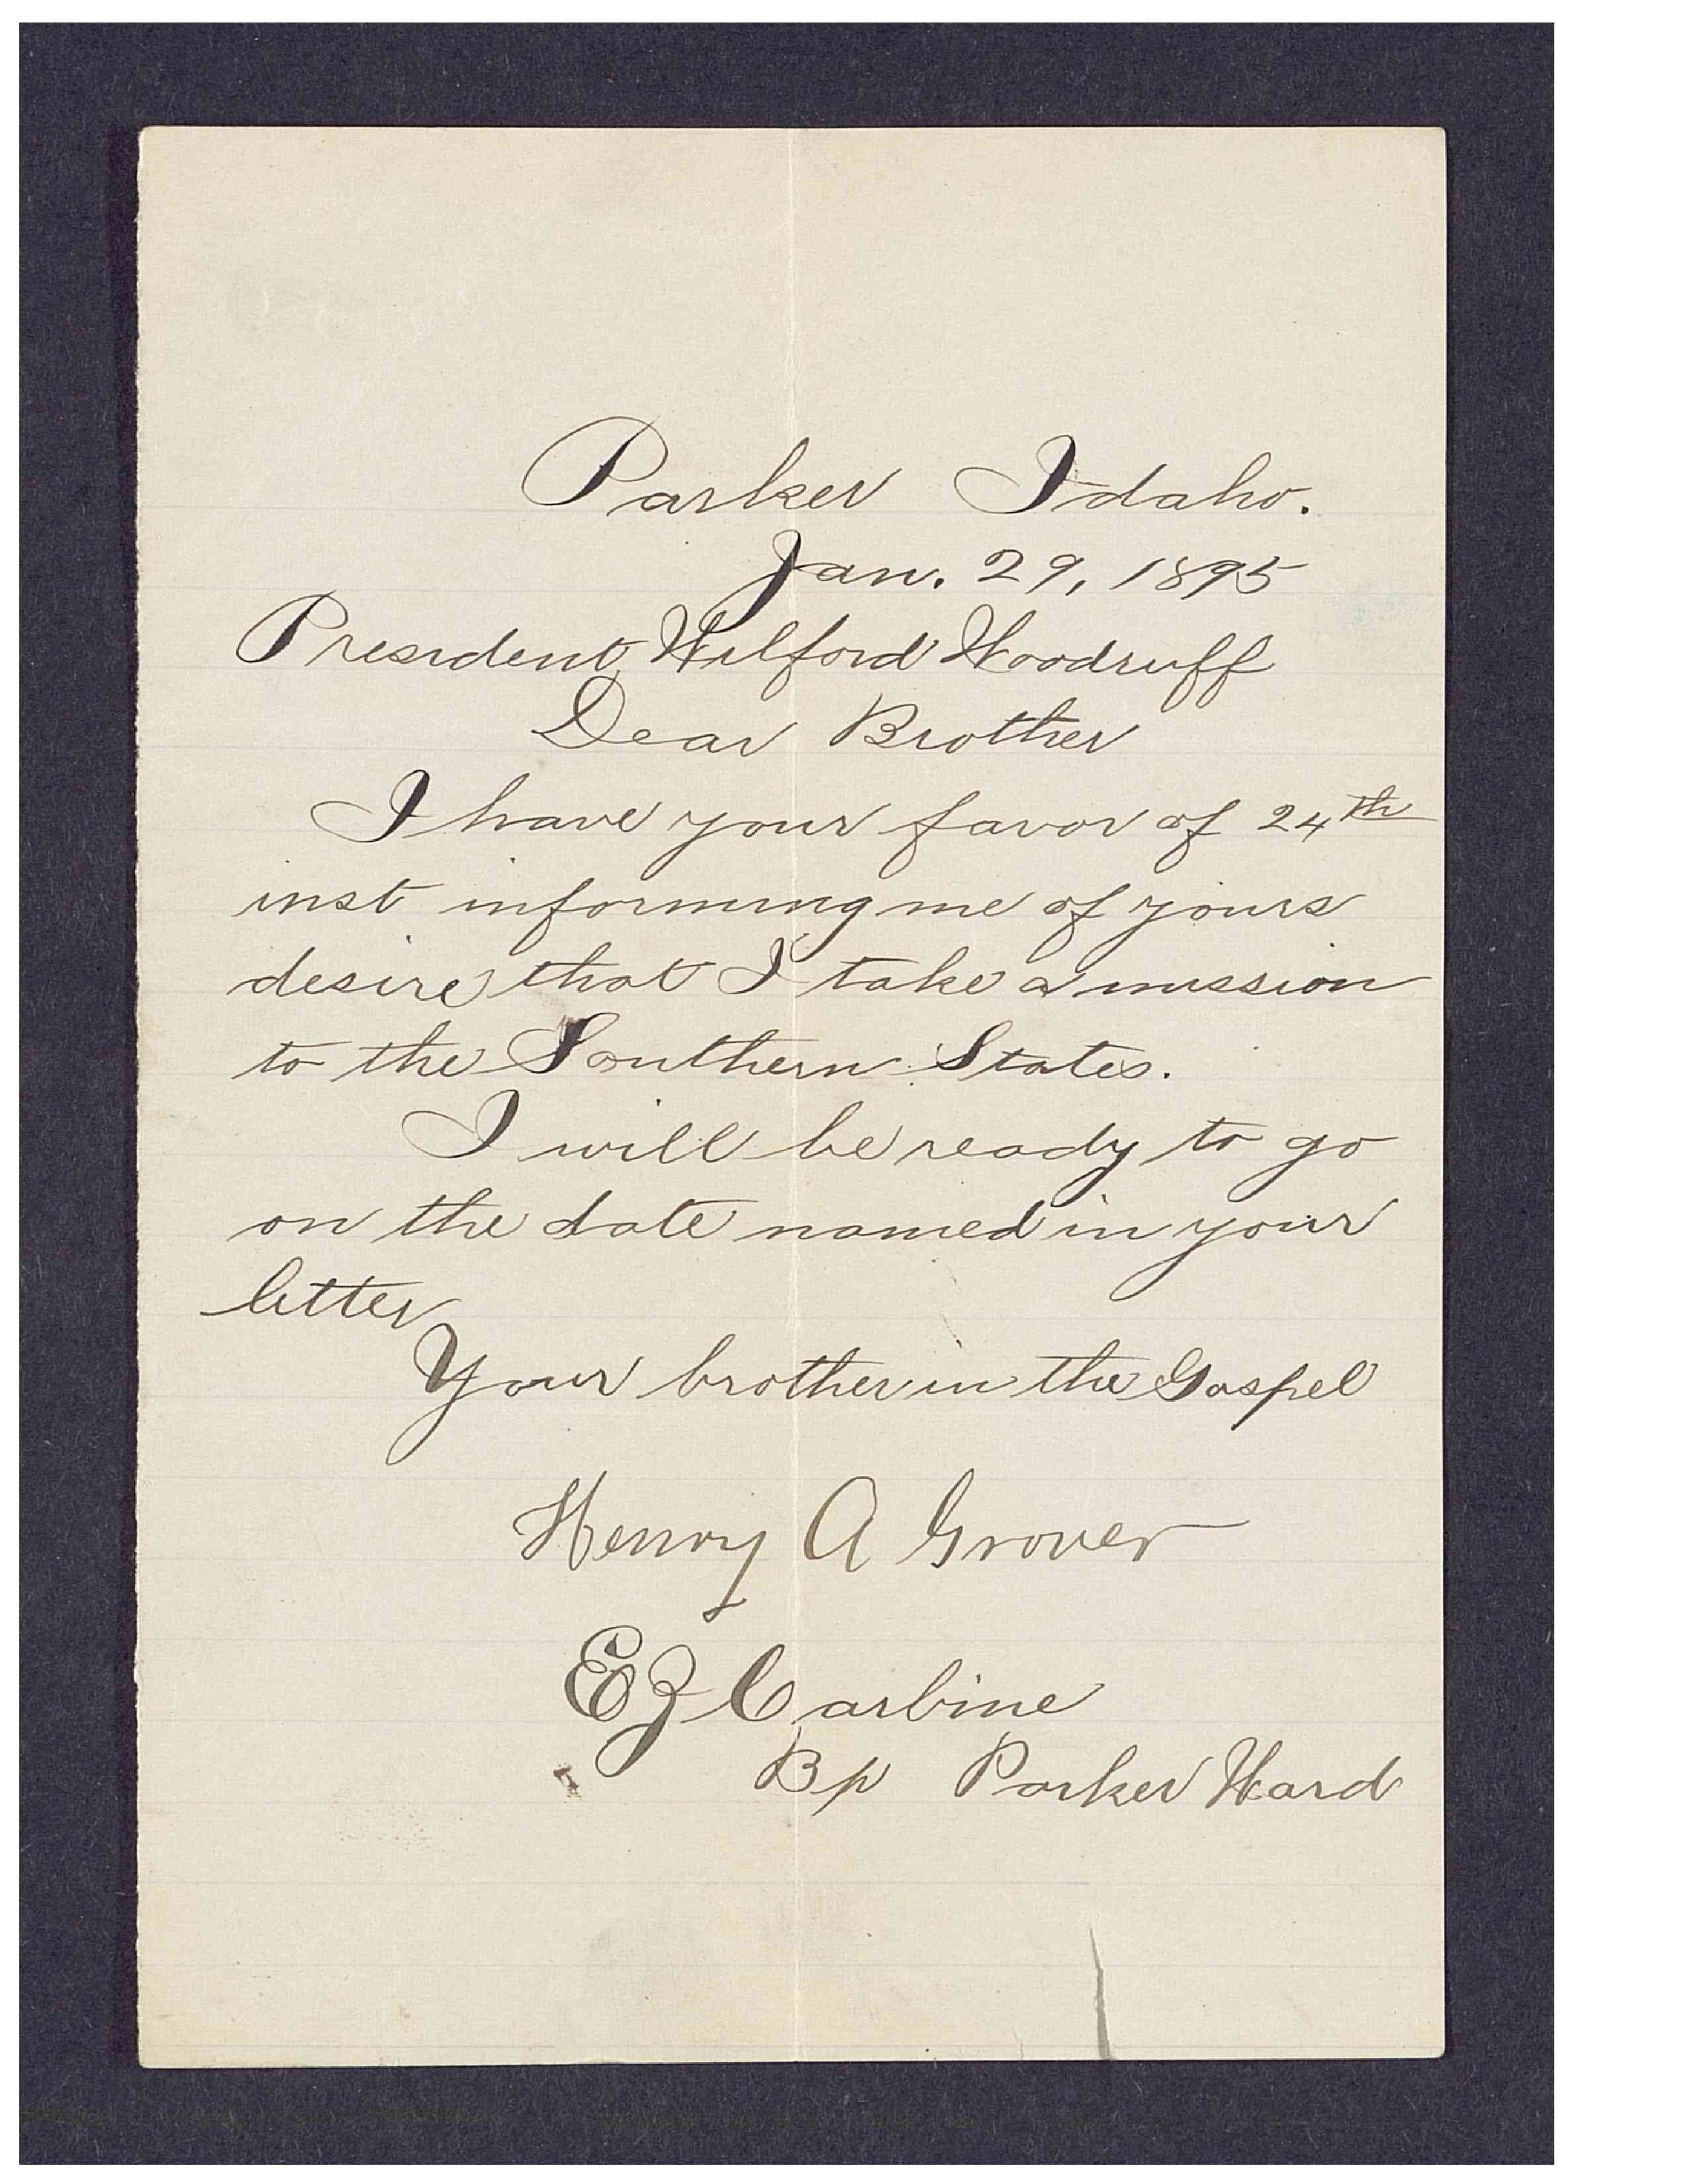 Parker Idaho.
Jan. 29, 1895
President Wilford Woodruff
Dear Brother
I have your favor of 24th
inst informing me of yours
desire that I take a mission
to the Southern States.
I will be ready to go
on the date named in your
letter
Your brother in the Gospel
Henry A Grover
EZ Carbine
Bp Parker Ward